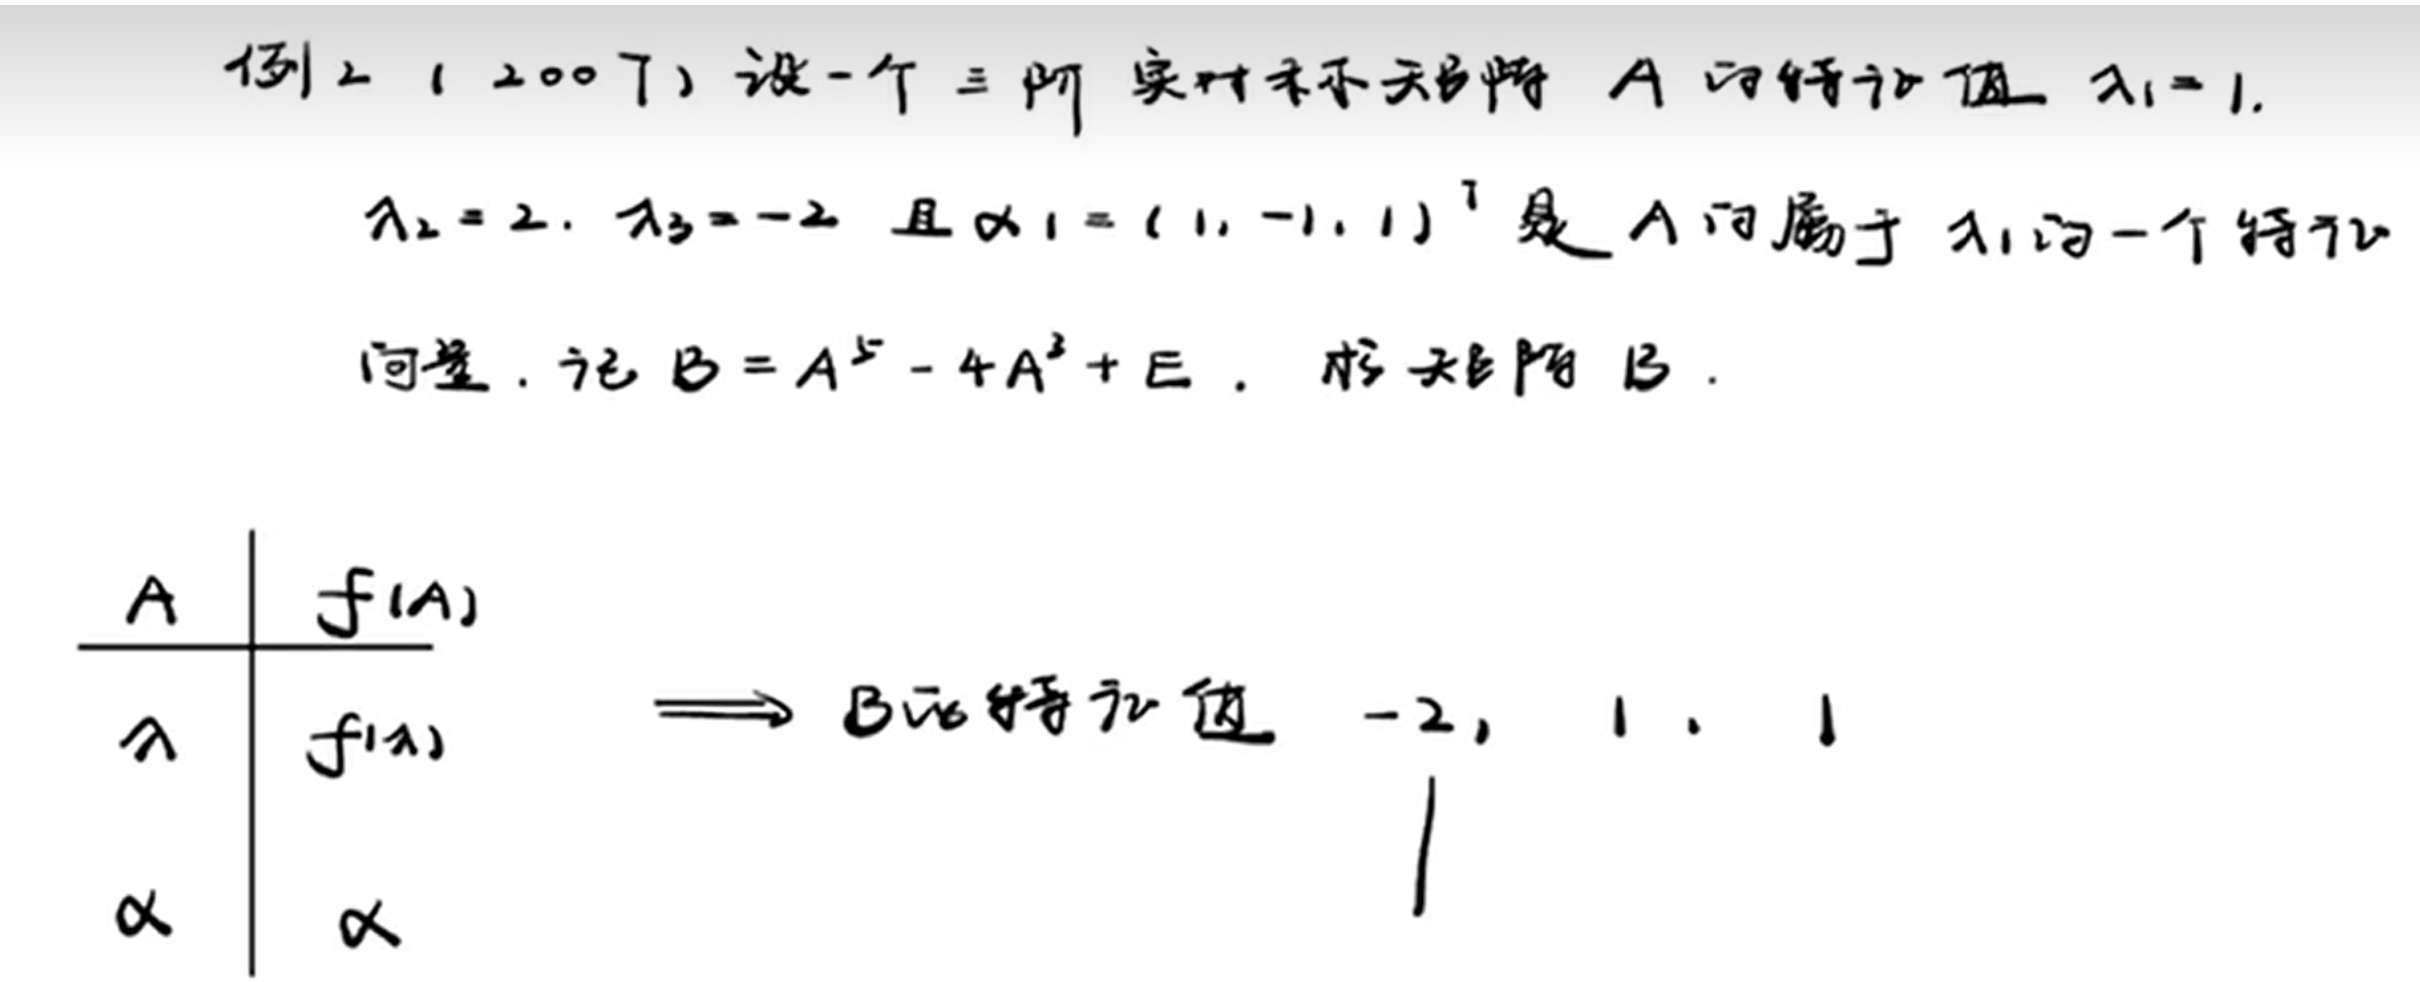 例2 (2007) 设一个三阶实对称矩阵 A 的特征值 λ₁=1.
λ₂=2. λ₃=-2 且 α₁=(1,-1,1)ᵀ 是 A 的属于 λ₁ 的一个特征
向量. 记 B=A⁵-4A³+E. 求矩阵 B.
A f(A)
λ f(λ) ⟹ B的特征值 -2, 1. 1
α α